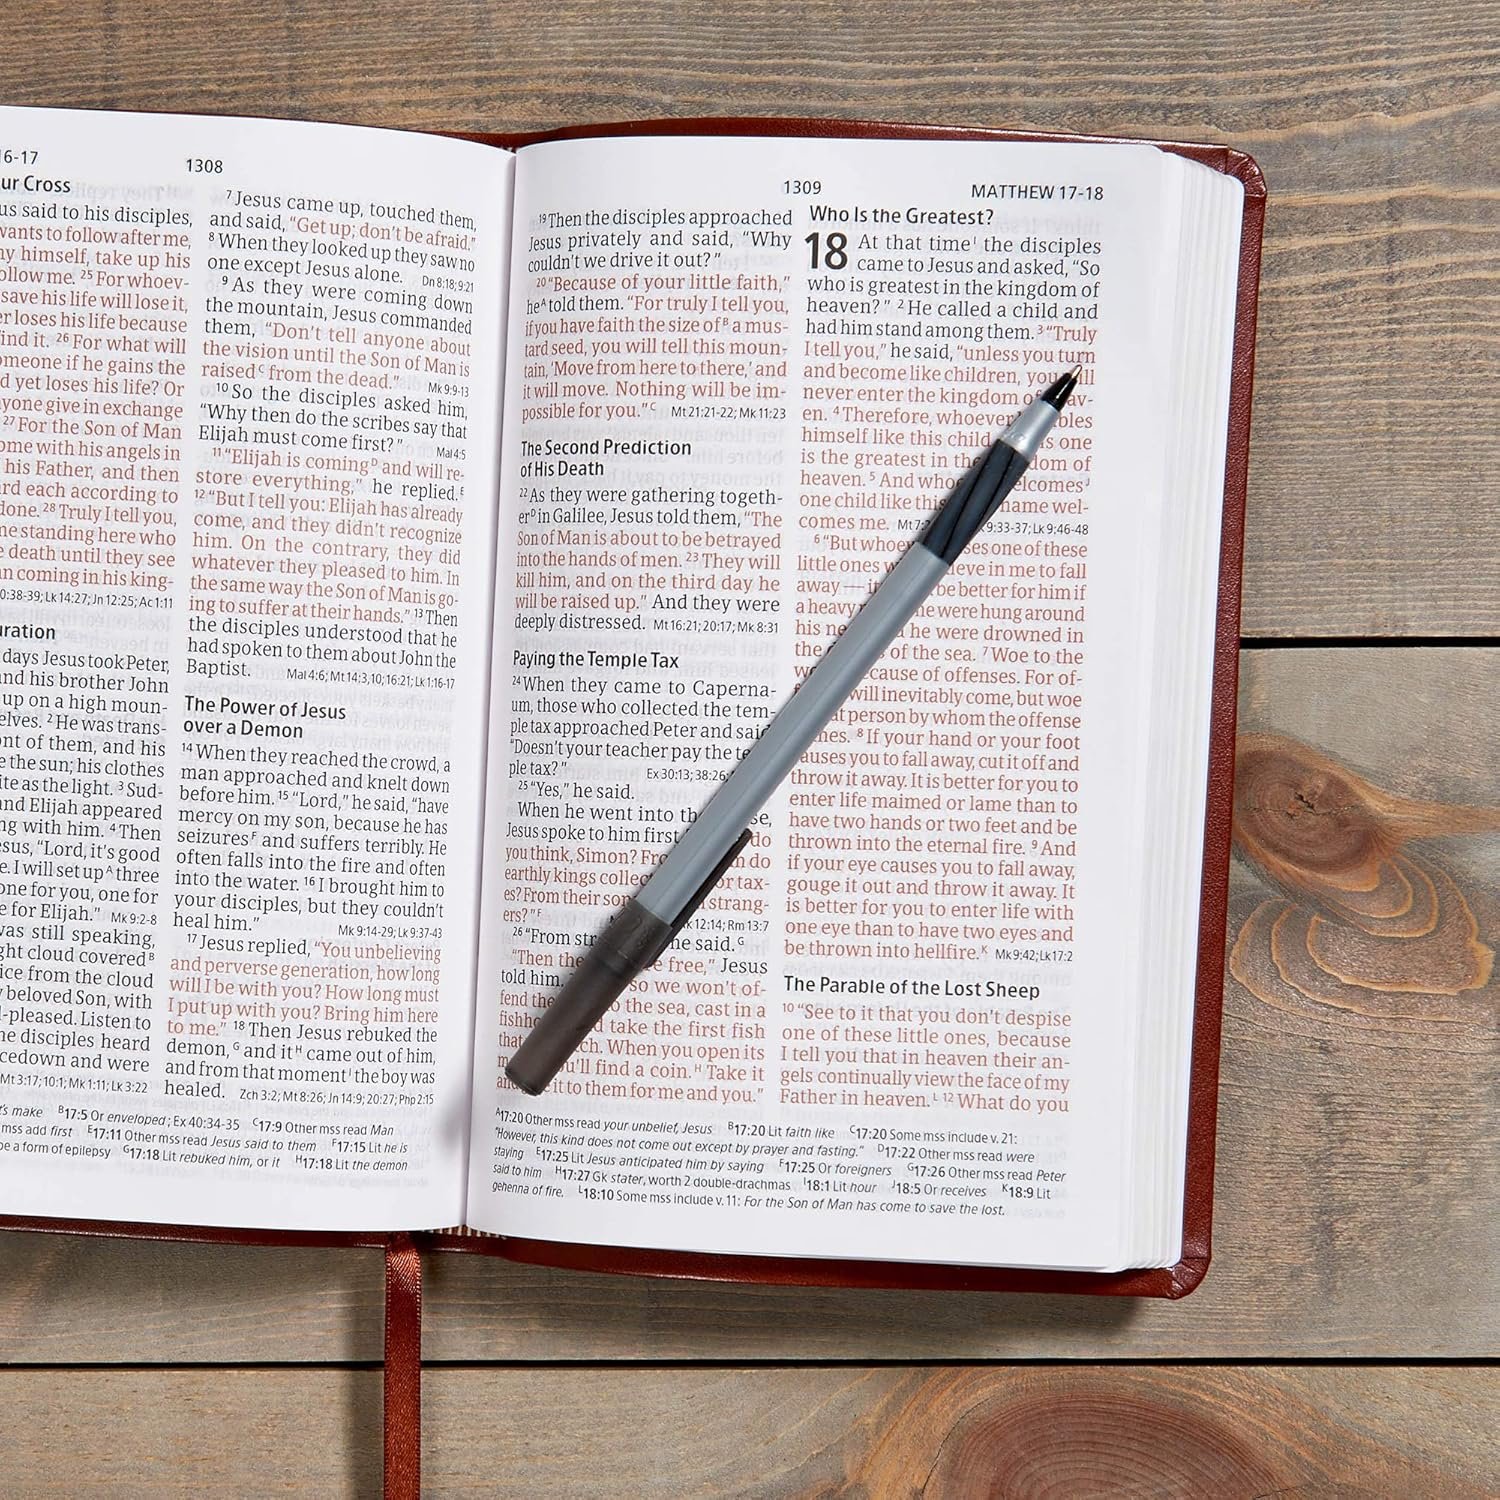 16-17
1308
ur Cross
us said to his disciples,
wants to follow after me,
himself, take up his
follow me. 25 For whoev-
save his life will lose it,
loses his life because
find it. 26 For what will
someone if he gains the
yet loses his life? Or
anyone give in exchange
27 For the Son of Man
come with his angels in
his Father, and then
each according to
done. 28 Truly I tell you,
some standing here who
death until they see
coming in his king-
0:38-39; Lk 14:27; Jn 12:25; Ac 1:11
uration
days Jesus took Peter,
and his brother John
up on a high moun-
elves. 2 He was trans-
ont of them, and his
the sun; his clothes
as the light. 3 Sud-
and Elijah appeared
ng with him. 4 Then
esus, "Lord, it's good
I will set up A three
one for you, one for
e for Elijah." Mk 9:2-8
was still speaking,
ght cloud covered B
ice from the cloud
beloved Son, with
l-pleased. Listen to
e disciples heard
cedown and were
Mt 3:17; 10:1; Mk 1:11; Lk 3:22
7 Jesus came up, touched them,
and said, "Get up; don't be afraid."
8 When they looked up they saw no
one except Jesus alone. Dn 8:18; 9:21
9 As they were coming down
the mountain, Jesus commanded
them, "Don't tell anyone about
the vision until the Son of Man is
raised C from the dead." Mk 9:9-13
10 So the disciples asked him,
"Why then do the scribes say that
Elijah must come first?" Mal 4:5
11 "Elijah is coming D and will re-
store everything," he replied. E
12 "But I tell you: Elijah has already
come, and they didn't recognize
him. On the contrary, they did
whatever they pleased to him. In
the same way the Son of Man is go-
ing to suffer at their hands." 13 Then
the disciples understood that he
had spoken to them about John the
Baptist. Mal 4:6; Mt 14:3,10; 16:21; Lk 1:16-17
The Power of Jesus
over a Demon
14 When they reached the crowd, a
man approached and knelt down
before him. 15 "Lord," he said, "have
mercy on my son, because he has
seizures F and suffers terribly. He
often falls into the fire and often
into the water. 16 I brought him to
your disciples, but they couldn't
heal him." Mk 9:14-29; Lk 9:37-43
17 Jesus replied, "You unbelieving
and perverse generation, how long
will I be with you? How long must
I put up with you? Bring him here
to me." 18 Then Jesus rebuked the
demon, G and it H came out of him,
and from that moment I the boy was
healed. Zch 3:2; Mt 8:26; Jn 14:9; 20:27; Php 2:15
's make B17:5 Or enveloped; Ex 40:34-35 C17:9 Other mss read Man
mss add first E17:11 Other mss read Jesus said to them F17:15 Lit he is
be a form of epilepsy G17:18 Lit rebuked him, or it H17:18 Lit the demon
1309
MATTHEW 17-18
19 Then the disciples approached
Jesus privately and said, "Why
couldn't we drive it out?"
20 "Because of your little faith,"
he A told them. "For truly I tell you,
if you have faith the size of B a mus-
tard seed, you will tell this moun-
tain, 'Move from here to there,' and
it will move. Nothing will be im-
possible for you." C Mt 21:21-22; Mk 11:23
The Second Prediction
of His Death
22 As they were gathering togeth-
er D in Galilee, Jesus told them, "The
Son of Man is about to be betrayed
into the hands of men. 23 They will
kill him, and on the third day he
will be raised up." And they were
deeply distressed. Mt 16:21; 20:17; Mk 8:31
Paying the Temple Tax
24 When they came to Caperna-
um, those who collected the tem-
ple tax approached Peter and said,
"Doesn't your teacher pay the te
ple tax?" Ex 30:13; 38:26;
25 "Yes," he said.
When he went into th se,
Jesus spoke to him first do
you think, Simon? Fro m do
earthly kings collec or tax-
es? From their son strang-
ers?" F k 12:14; Rm 13:7
26 "From str he said. G
"Then the re free," Jesus
told him. so we won't of-
fend the o the sea, cast in a
fishho d take the first fish
that ch. When you open its
m u'll find a coin. H Take it
and e it to them for me and you."
Who Is the Greatest?
18 At that time I the disciples
came to Jesus and asked, "So
who is greatest in the kingdom of
heaven?" 2 He called a child and
had him stand among them. 3 "Truly
I tell you," he said, "unless you turn
and become like children, you will
never enter the kingdom of av-
en. 4 Therefore, whoever bles
himself like this child is one
is the greatest in the dom of
heaven. 5 And whoe elcomes J
one child like this name wel-
comes me. Mt 7:2 k 9:33-37; Lk 9:46-48
6 "But whoev ses one of these
little ones w lieve in me to fall
away — it be better for him if
a heavy m ne were hung around
his ne d he were drowned in
the d of the sea. 7 Woe to the
wo ecause of offenses. For of-
will inevitably come, but woe
at person by whom the offense
mes. 8 If your hand or your foot
auses you to fall away, cut it off and
throw it away. It is better for you to
enter life maimed or lame than to
have two hands or two feet and be
thrown into the eternal fire. 9 And
if your eye causes you to fall away,
gouge it out and throw it away. It
is better for you to enter life with
one eye than to have two eyes and
be thrown into hellfire. K Mk 9:42; Lk 17:2
The Parable of the Lost Sheep
10 "See to it that you don't despise
one of these little ones, because
I tell you that in heaven their an-
gels continually view the face of my
Father in heaven. L 12 What do you
A17:20 Other mss read your unbelief, Jesus B17:20 Lit faith like C17:20 Some mss include v. 21:
"However, this kind does not come out except by prayer and fasting." D17:22 Other mss read were
staying E17:25 Lit Jesus anticipated him by saying F17:25 Or foreigners G17:26 Other mss read Peter
said to him H17:27 Gk stater, worth 2 double-drachmas I18:1 Lit hour J18:5 Or receives K18:9 Lit
gehenna of fire. L18:10 Some mss include v. 11: For the Son of Man has come to save the lost.